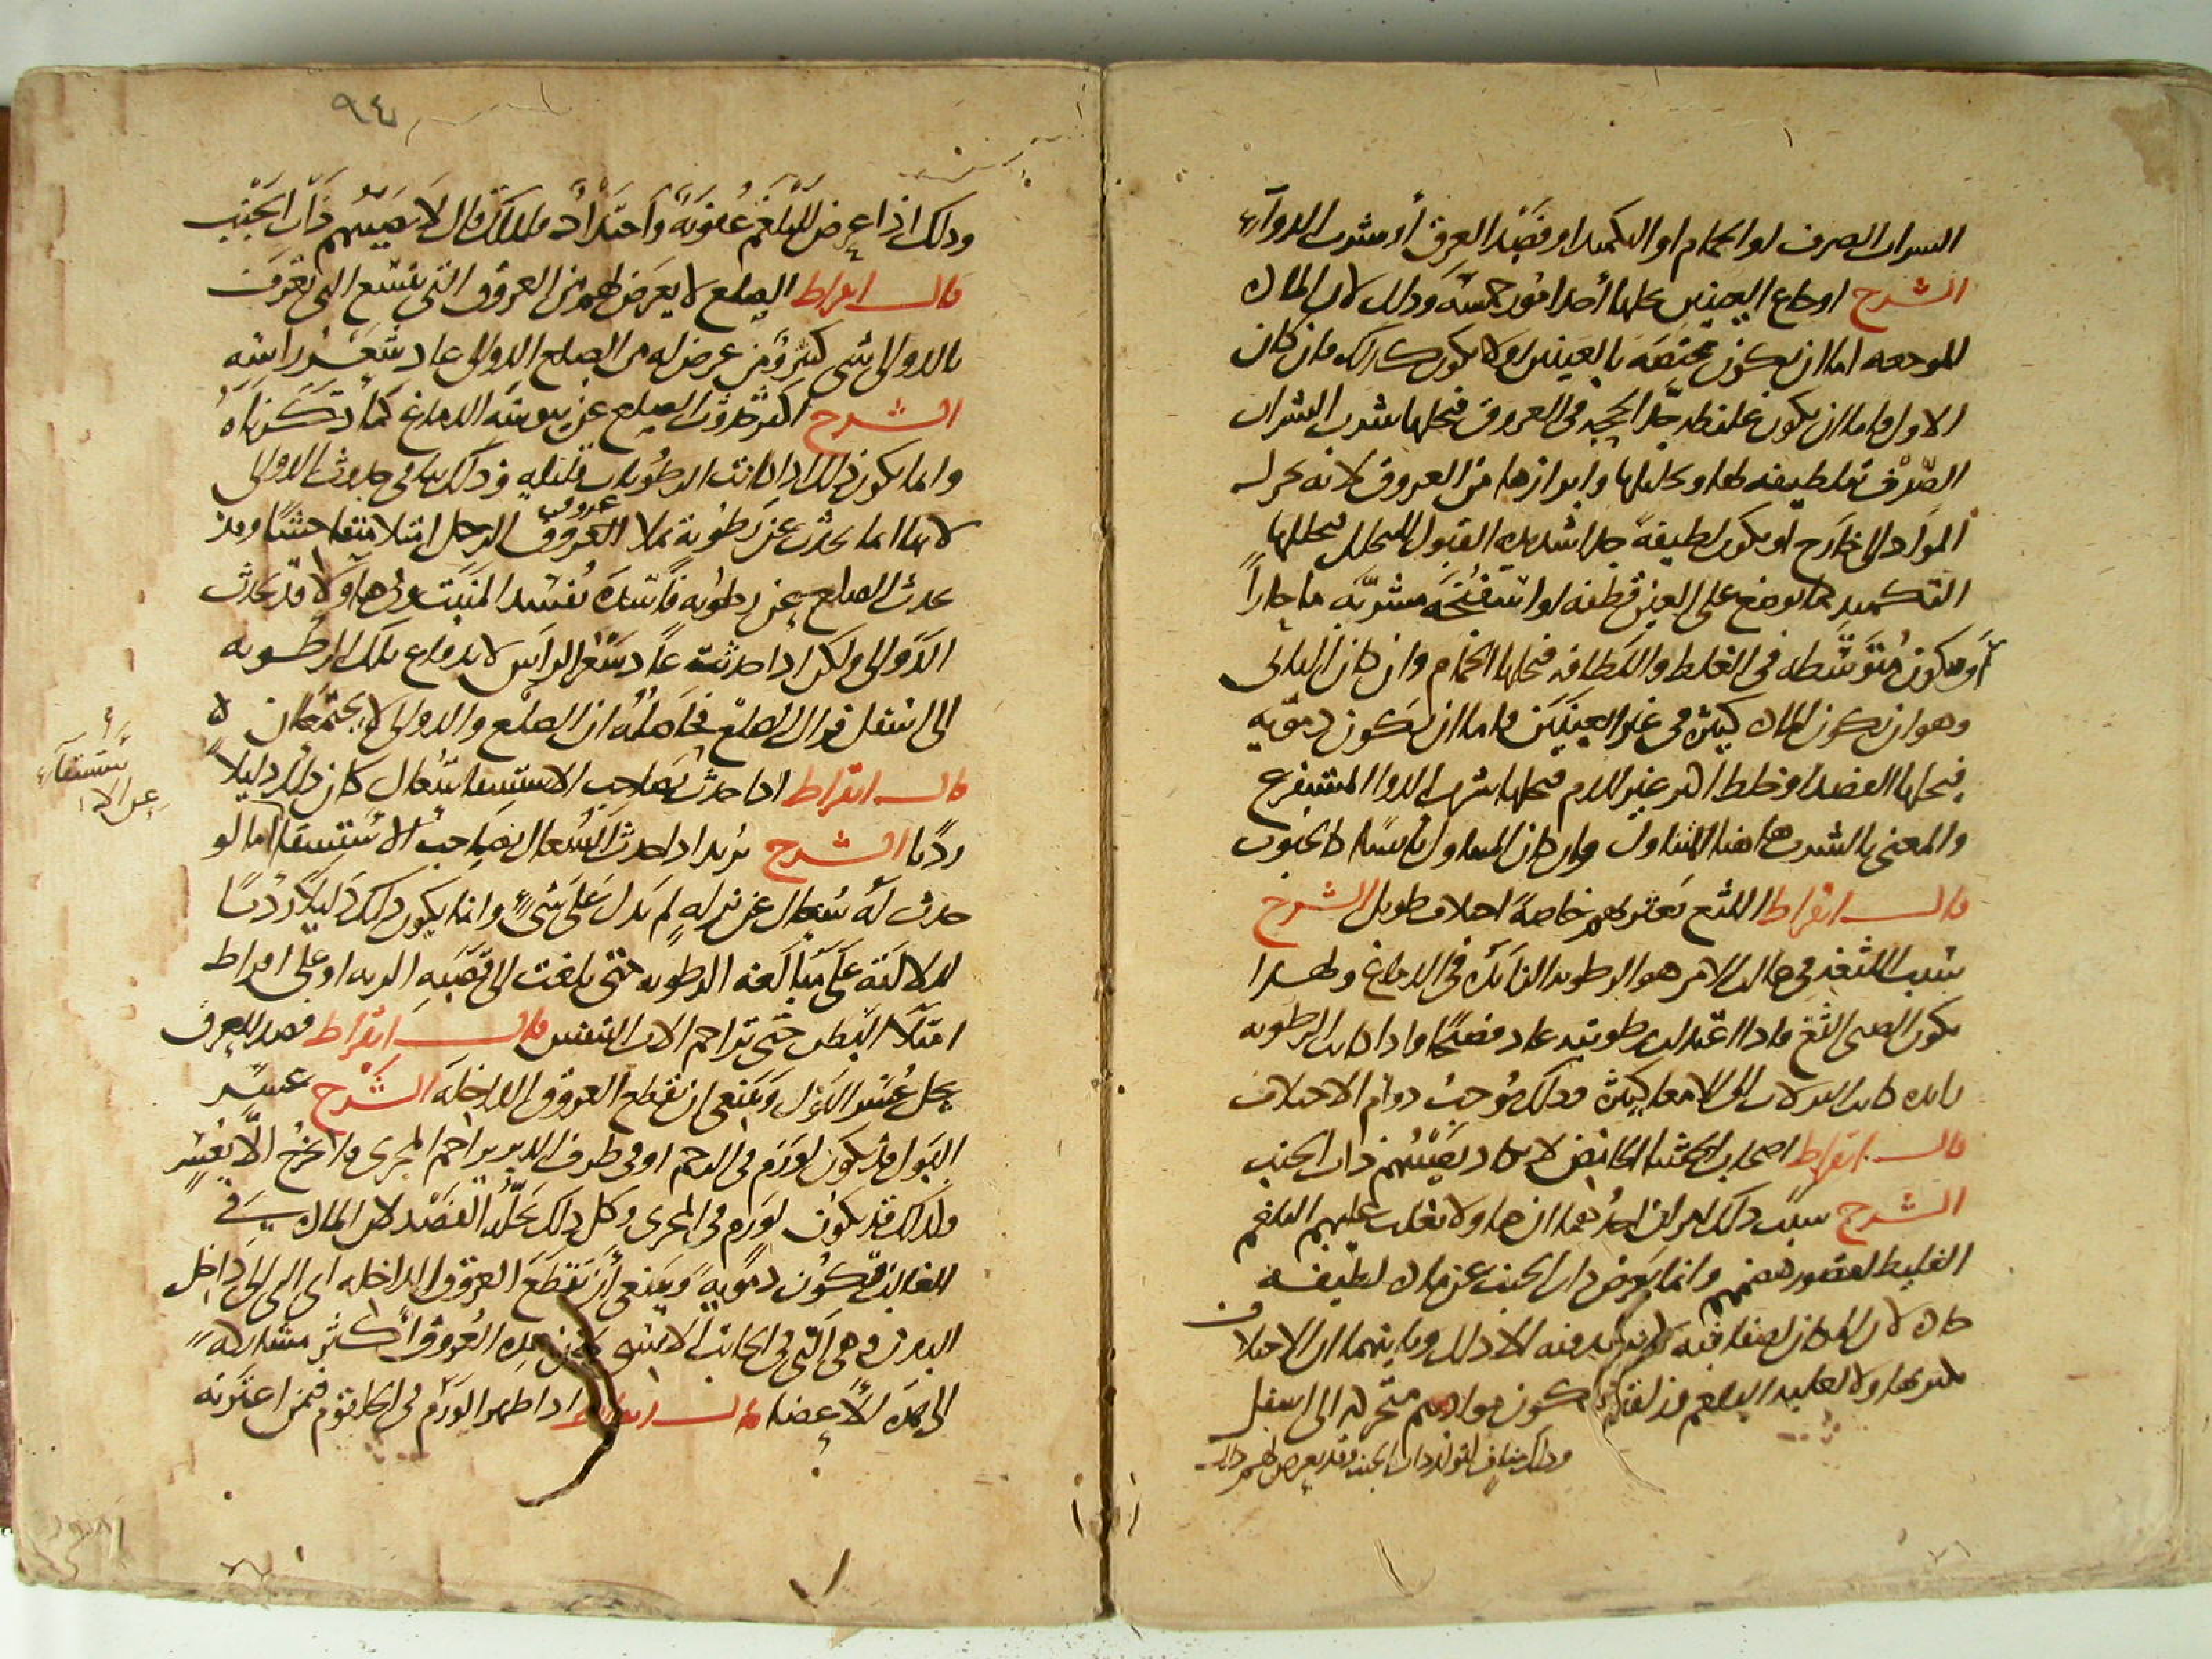 الشراب الصرف او الحمام او التكميد او فصد العرق أو شرب الدوآء
الشرح اوجاع العينين يحلها أحد امور خمسة وذلك لان المادة
الموجعه اما ان تكون مختصة بالعينين او لا تكون كذلك فان كان
الاول فاما ان تكون غليظه جدا لحجه في العروق فيحلها شرب الشراب
الصّرف بتلطيفه لها وتحليلها وابرازها من العروق لانه يحرك
المواد الى خارج او تكون لطيفة جدا شديدة القبول للتحلل فيحللها
التكميد بما يوضع على العين قطنه او اسفنجه مشربّه ما حاراً
أو تكون متوسّطه في الغلظ واللطافه فيحلها الحمام وان كان الثاني
وهو ان تكون المادة كثيرة في غير العينين فاما ان تكون دمويه
فيحلها الفصد او خلط اخر غير الدم فيحلها شرب الدوا المستفرغ
والمعنى بالشرب هاهنا المتناول وان كان المتناول يابسا كالحبوب
قال ابقراط اللثغ يعتريهم خاصة اختلاف طويل الشرح
سبب اللثغه في غالب الامر هو الرطوبه الزائدة في الدماغ ولهذا
يكون الصبى الثغ فاذا اعتدلت رطوبته عاد فصيحًا واذا كانت الرطوبه
زايده كانت النزلات الى الامعا كثيرة وذلك يُوجب دوام الاختلاف
قال ابقراط اصحاب الجشا الحامض لا يكاد يصيبهم ذات الجنب
الشرح سبب ذلك امران احدهما ان هاولا يغلب عليهم البلغم
الغليظ لقصور هضمهم وانما يعرض ذات الجنب عن مادة لطيفة
حادة لان المكان لصفاقته لا ينفذ فيه الا ذلك وثانيهما ان الاختلاف
يكثر بهاولا لغلبة البلغم وزلقه فتكون موادهم متحركه الى اسفل
وذلك مناف لتولد ذات الجنب وقد يعرض لهم ذات
٩٤
وذلك اذا عرض للبلغم عفونة واحتداد فلذلك قال لا يصيبهم ذات الجنب
قال ابقراط الصلع لا يعرض لهم من العروق التي تتسع التي تعرف
بالدوالي شي كبير ومن عرض له من الصلع الدوالي عاد شعر راسه
الشرح اكثر حدوث الصلع عن يبوسة الدماغ كما ذكرناه
وانما يكون ذلك اذا كانت الرطوبات قليله وذلك ينافي حدوث الدوالي
لانها انما تحدث عن رطوبة تملا العروق عروق الرجل امتلا متفاحشا وقد
يحدث الصلع عن رطوبه فاسدة تفسد المنبت وهاولا قد يحدث بهم
الدوالي ولكن اذا حدثت عاد شعر الراس لاندفاع تلك الرطوبه
الى اسفل فزال الصلع فحاصله ان الصلع والدوالي لا يجتمعان
قال ابقراط اذا حدث بصاحب الاستسقا سُعال كان ذلك دليلاً
رديًا الشرح يُريد اذا حدث السُعال بصاحب الاستسقا اما لو
حدث له سُعال عن نزله لم يدل على شي وانما يكون ذلك دليلا رديًا
لدلالته على مبالغة الرطوبه حتى بلغت الى قصبه الريه او على افراط
امتلا البطن حتى تزاحم الات التنفس قال ابقراط فصد العرق
يحل عُسر البول وينبغي ان تقطع العروق الداخلة الشرح عسر
البول قد يكون لورم في الرحم او في طرف الدبر يزاحم المجرى فلا يخرج الا بعسر
وكذلك قد يكون لورم في المجرى وكل ذلك يحله الفصد لان المادة في
الغالب تكون دمويةً وينبغي أن تقطع العروق الداخله اى التي الى داخل
البدن وهي التي في الجانب الانسي لان هذه العُروق أكثر مشاركة
الى هذه الأعضا قال ابقراط اذا ظهر الورم في الحلقوم فيمن اعترته